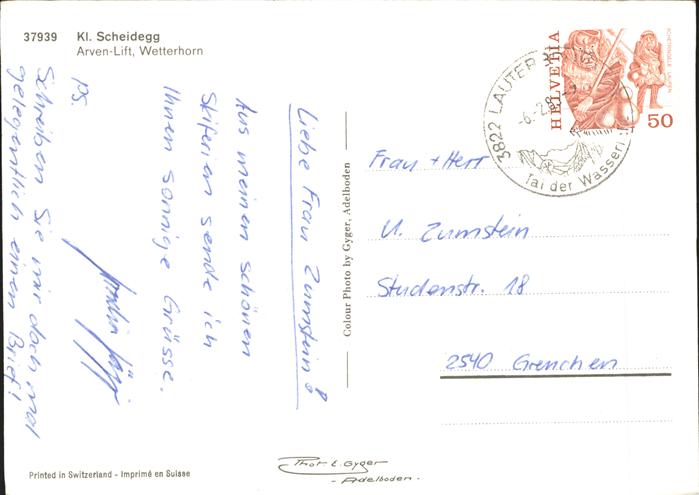 37939 Kl. Scheidegg
Arven-Lift, Wetterhorn
Liebe Frau Zumstein!
Aus meinen schönen
Skiferien sende ich
Ihnen sonnige Grüsse.
PS.
Schreiben Sie mir doch mal
gelegentlich einen Brief!
Colour Photo by Gyger, Adelboden
HELVETIA
50
3822 LAUTER
-6.-2.8
Tal der Wasser
Frau + Herr
U. Zumstein
Studenstr. 18
2540 Grenchen
Printed in Switzerland - Imprimé en Suisse
Phot. E. Gyger
- Adelboden -